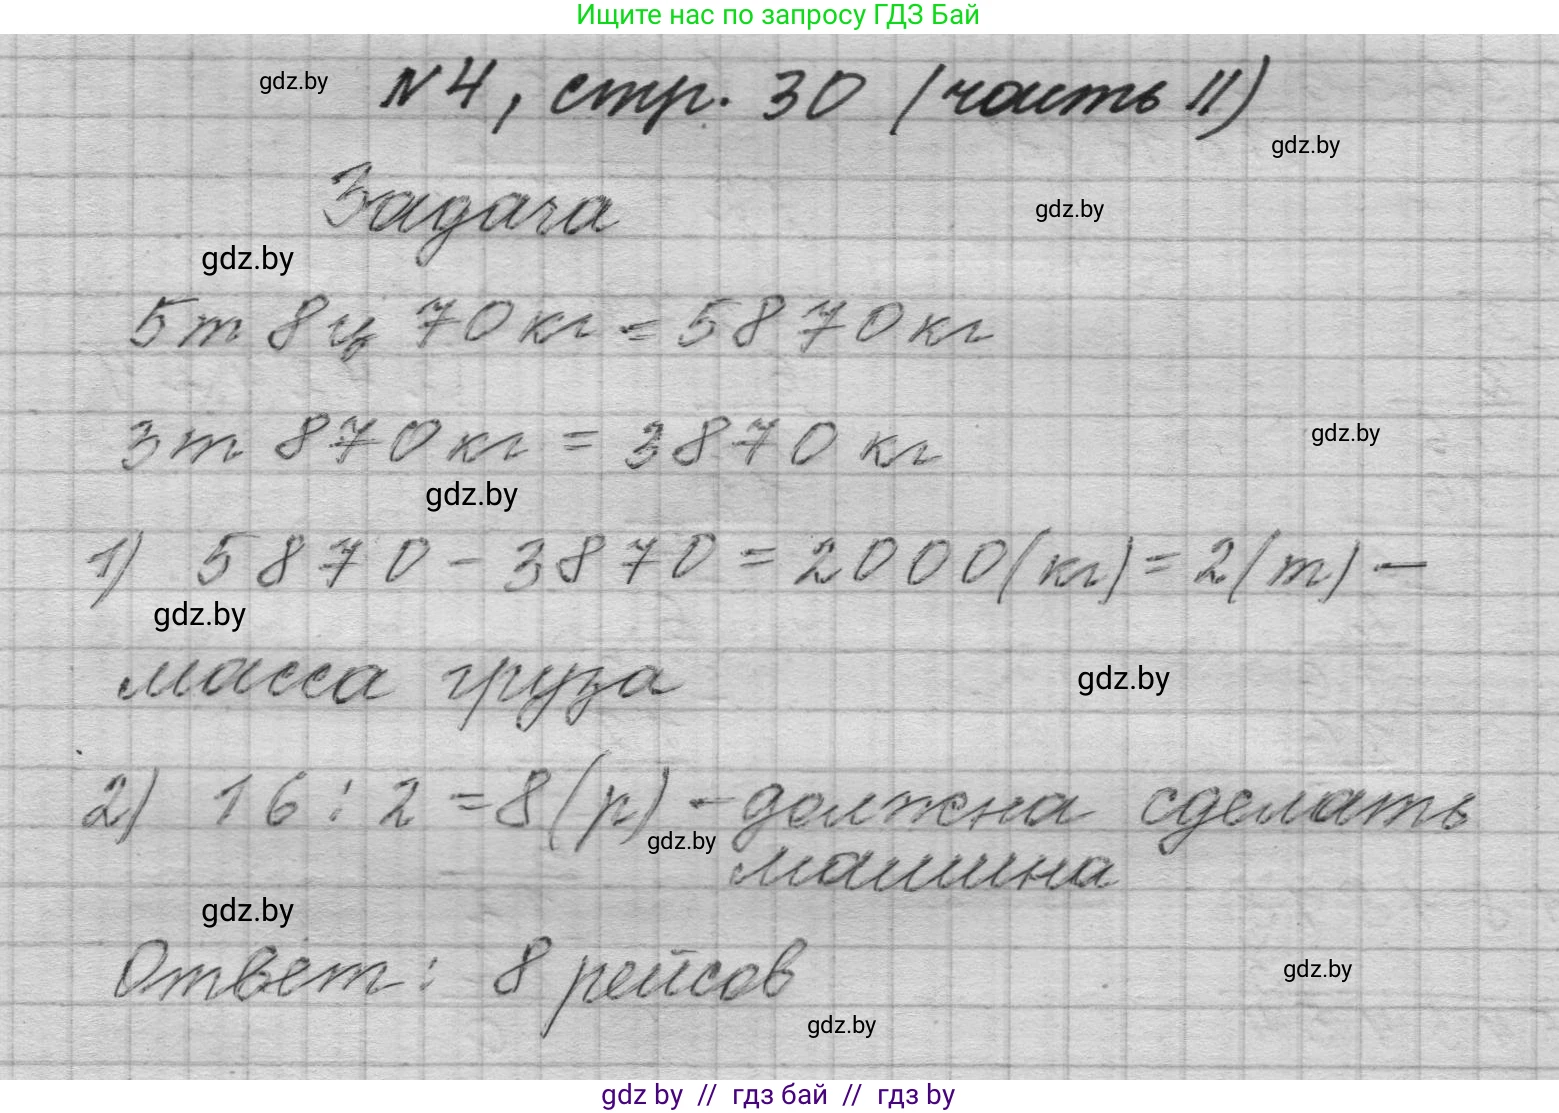 Ищите нас по запросу ГДЗ Бай
gdz.by
N4, стр. 30 (часть II)
gdz.by
Задача
gdz.by
gdz.by
5т 8ц 70кг = 5870кг
3т 870кг = 3870 кг
gdz.by
gdz.by
1) 5870 - 3870 = 2000(кг) = 2(т) -
gdz.by
масса груза
gdz.by
2) 16 : 2 = 8(р) - должна сделать
gdz.by
машина
gdz.by
Ответ: 8 рейсов
gdz.by
gdz.by
gdz by // гдз бай // гдз by